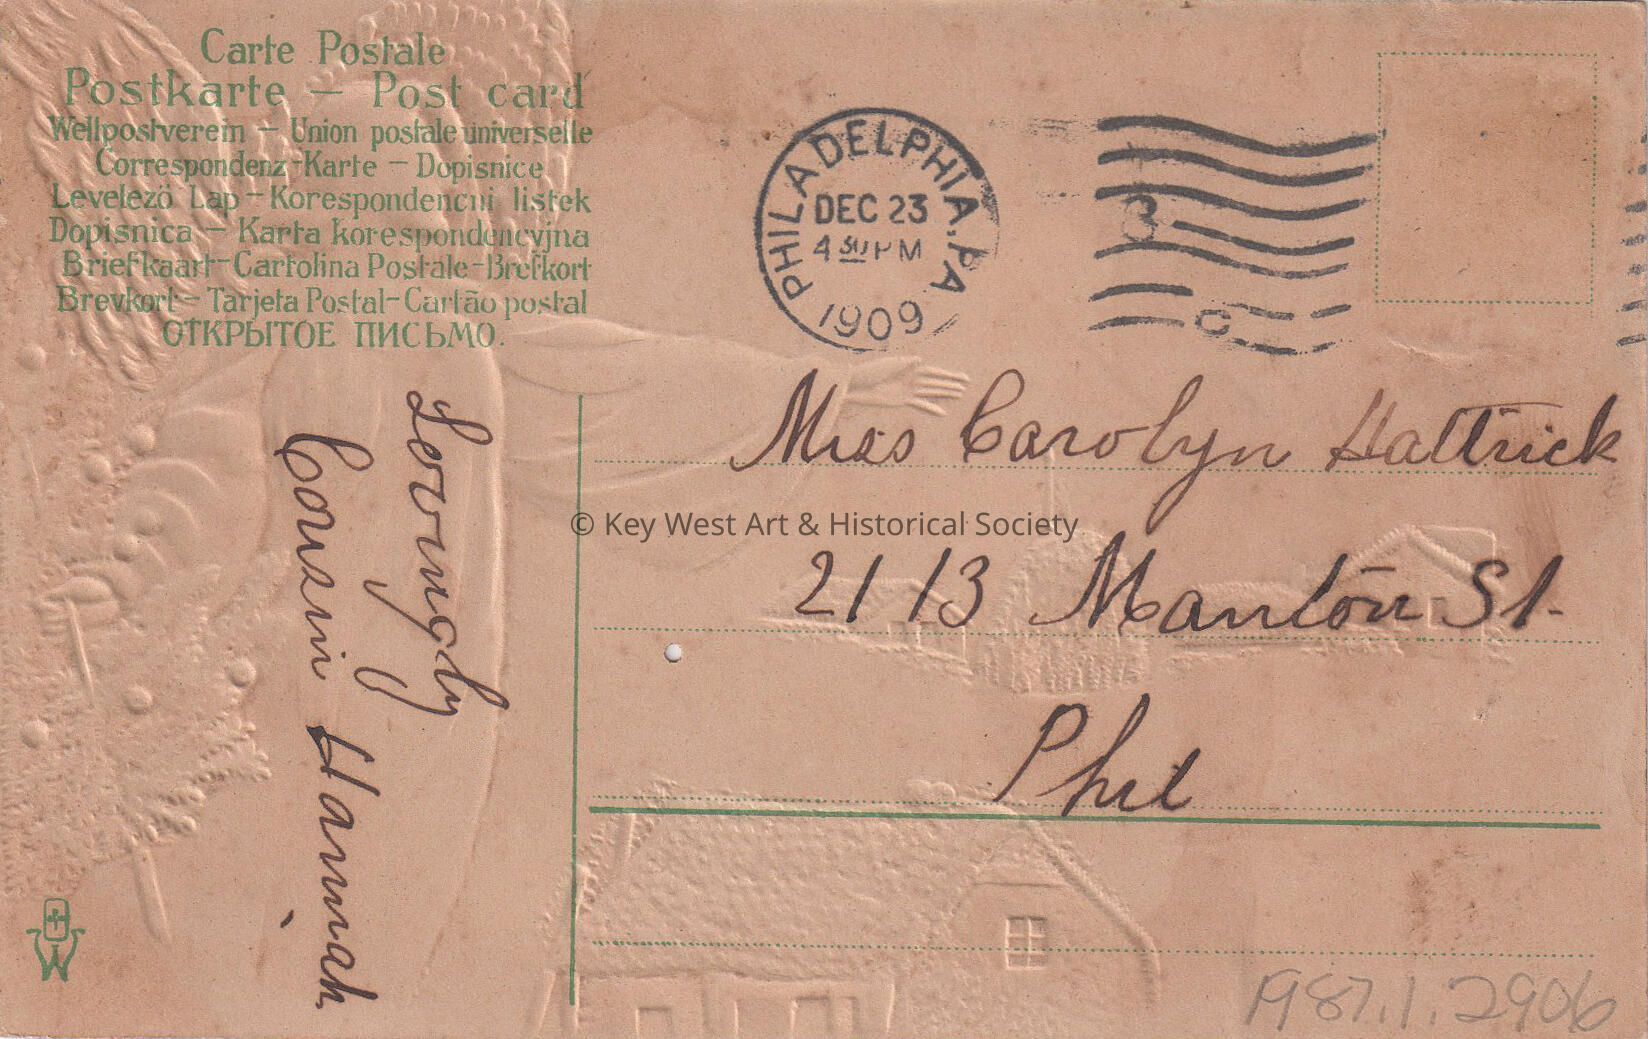 Carte Postale
Postkarte — Post card
Weltpostverein — Union postale universelle
Correspondenz-Karte — Dopisnice
Levelező Lap — Korespondencni listek
Dopisnica — Karta korespondencyjna
Briefkaart — Cartolina Postale — Brefkort
Brevkort — Tarjeta Postal — Cartão postal
ОТКРЫТОЕ ПИСЬМО.
PHILADELPHIA, PA
DEC 23
4 30 PM
1909
3
C
Miss Carolyn Hattrick
2113 Manton St.
Phil
Lovingly
Cousin Hannah
© Key West Art & Historical Society
W
1987.1.2906